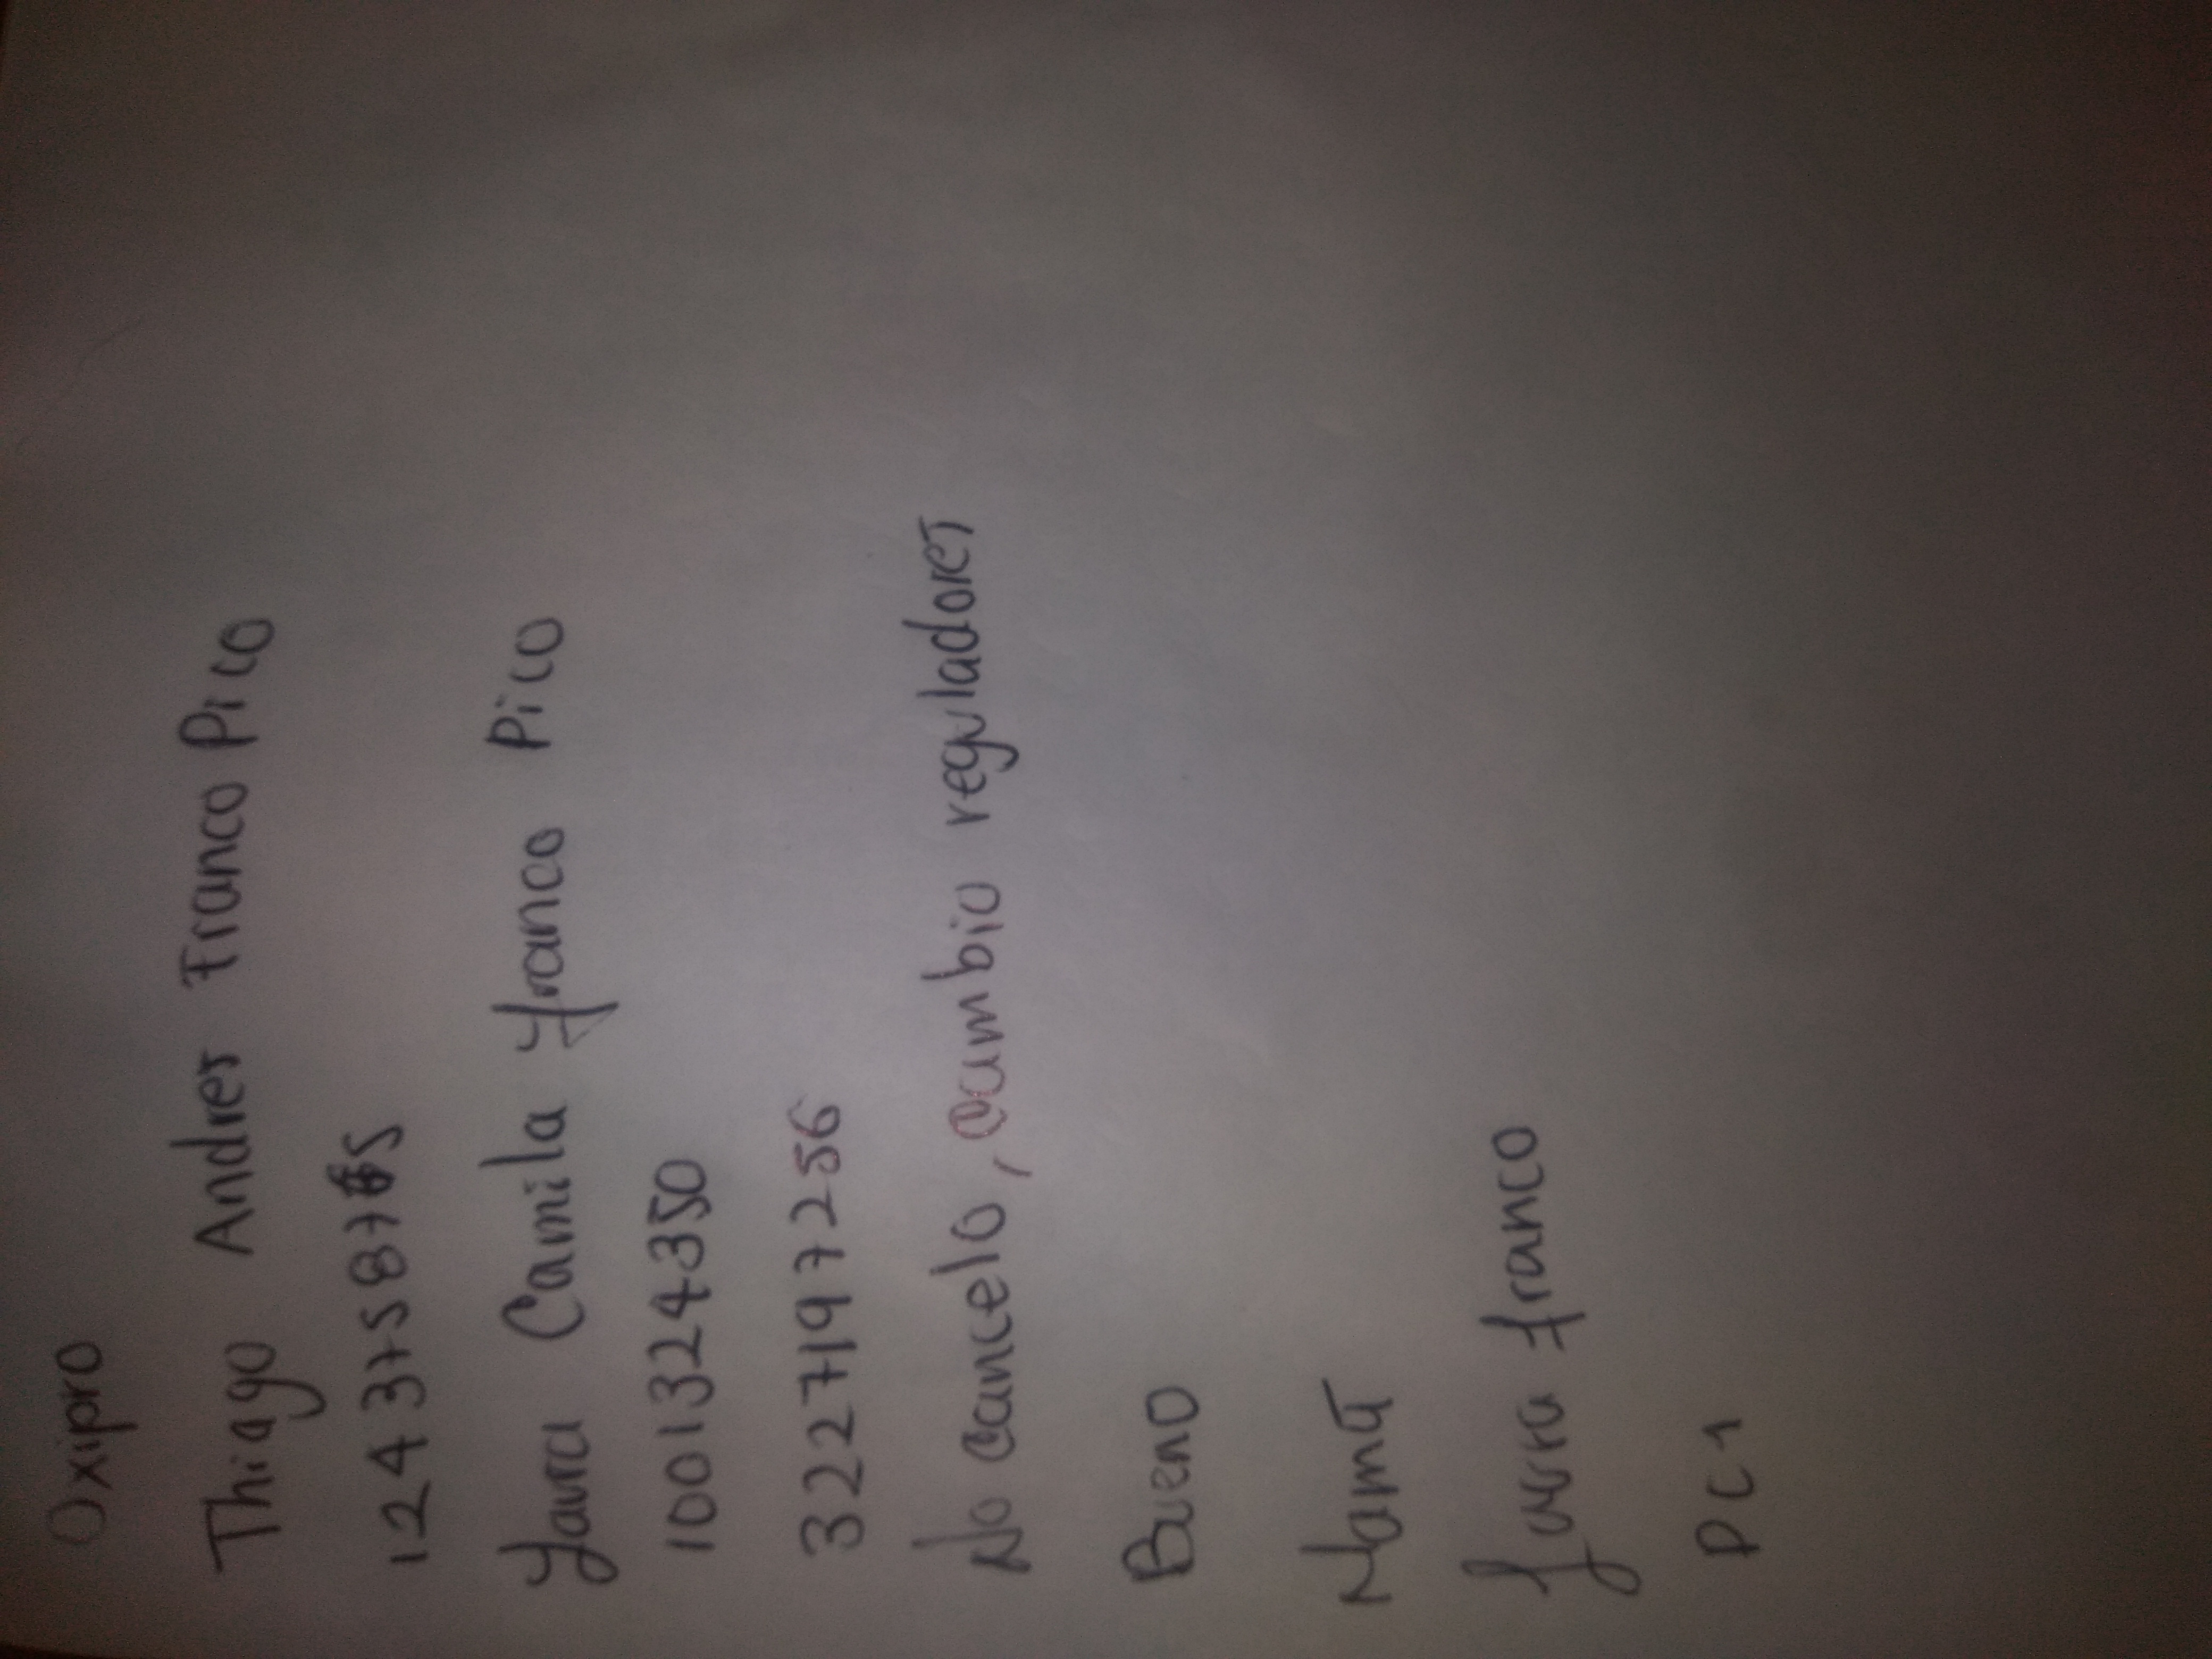 Oxipro
Thiago Andres Franco Pico
1243758785
Laura Camila Franco Pico
1001324350
3227197256
No cancelo, cambio reguladores
Bueno
Mamá
Laura franco
PC1